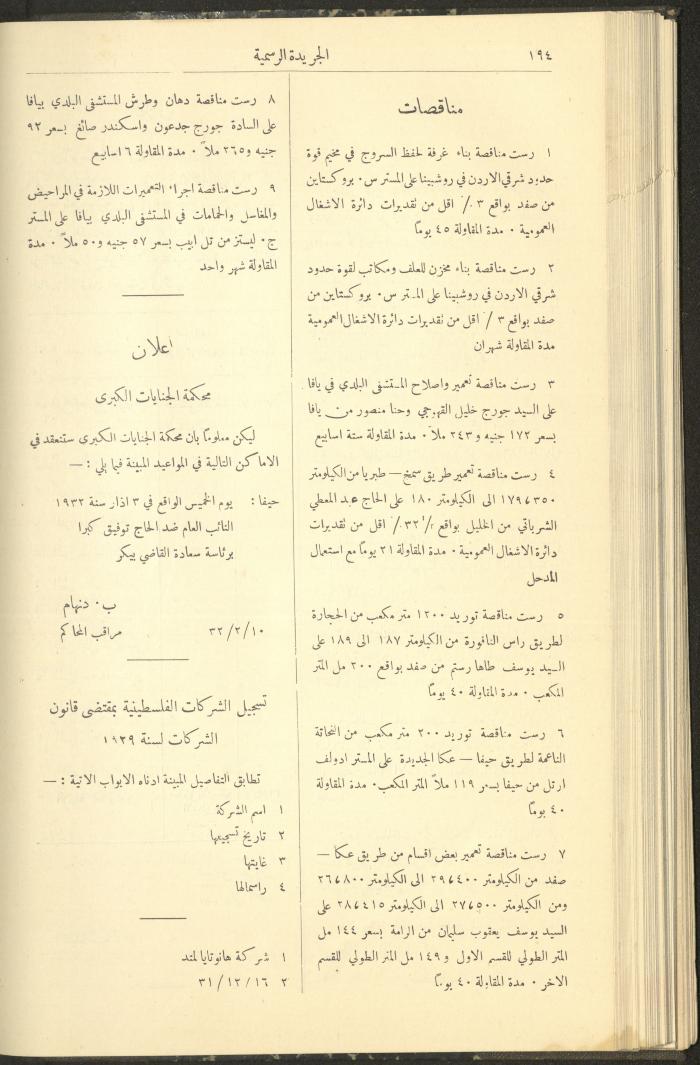 ١٩٤
الجريدة الرسمية
مناقصات
١ رست مناقصة بناء غرفة لحفظ السروج في مخيم قوة
حدود شرقي الاردن في روشبينا على المستر س٠ بروكستاين
من صفد بواقع ٣ ٠/٠ اقل من تقديرات دائرة الاشغال
العمومية ٠ مدة المقاولة ٤٥ يومًا
٢ رست مناقصة بناء مخزن للعلف ومكاتب لقوة حدود
شرقي الاردن في روشبينا على المستر س٠ بروكستاين من
صفد بواقع ٣ ٠/ اقل من تقديرات دائرة الاشغال العمومية
مدة المقاولة شهران
٣ رست مناقصة تعمير واصلاح المستشفى البلدي في يافا
على السيد جورج خليل القهوجي وحنا منصور من يافا
بسعر ١٧٢ جنيه و٢٤٣ ملاً ٠ مدة المقاولة ستة اسابيع
٤ رست مناقصة تعمير طريق سمخ — طبريا من الكيلومتر
١٧٩٬٣٥٠ الى الكيلومتر ١٨٠ على الحاج عبد المعطي
الشرباتي من الخليل بواقع ١/٢ ٣٢ ٠/٠ اقل من تقديرات
دائرة الاشغال العمومية ٠ مدة المقاولة ٢١ يومًا مع استعمال
المدحل
٥ رست مناقصة توريد ١٢٠٠ متر مكعب من الحجارة
لطريق راس النافورة من الكيلومتر ١٨٧ الى ١٨٩ على
السيد يوسف طاها رستم من صفد بواقع ٢٠٠ مل المتر
المكعب ٠ مدة المقاولة ٤٠ يومًا
٦ رست مناقصة توريد ٢٠٠ متر مكعب من النحاتة
الناعمة لطريق حيفا — عكا الجديدة على المستر ادولف
ارتل من حيفا بسعر ١١٩ ملاً المتر المكعب٠ مدة المقاولة
٤٠ يومًا
٧ رست مناقصة تعمير بعض اقسام من طريق عكا —
صفد من الكيلومتر ٢٩٬٤٠٠ الى الكيلومتر ٢٦٬٨٠٠
ومن الكيلومتر ٢٧٬٥٠٠ الى الكيلومتر ٢٨٬٤١٥ على
السيد يوسف يعقوب سليمان من الرامة بسعر ١٤٤ مل
المتر الطولي للقسم الاول و١٤٩ مل المتر الطولي للقسم
الاخر ٠ مدة المقاولة ٤٠ يومًا
٨ رست مناقصة دهان وطرش المستشفى البلدي بيافا
على السادة جورج جدعون واسكندر صائغ بسعر ٩٢
جنيه و٢٦٥ ملاً ٠ مدة المقاولة ٦ اسابيع
٩ رست مناقصة اجراء التعميرات اللازمة في المراحيض
والمغاسل والحمامات في المستشفى البلدي بيافا على المستر
ج٠ ليستز من تل ابيب بسعر ٥٧ جنيه و٥٠ ملاً ٠ مدة
المقاولة شهر واحد
اعلان
محكمة الجنايات الكبرى
ليكن معلومًا بان محكمة الجنايات الكبرى ستنعقد في
الاماكن التالية في المواعيد المبينة فيما يلي : —
حيفا : يوم الخميس الواقع في ٣ اذار سنة ١٩٣٢
النائب العام ضد الحاج توفيق كبرا
برئاسة سعادة القاضي بيكر
ب٠ دنهام
٣٢/٢/١٠ مراقب المحاكم
تسجيل الشركات الفلسطينية بمقتضى قانون
الشركات لسنة ١٩٢٩
تطابق التفاصيل المبينة ادناه الابواب الاتية : —
١ اسم الشركة
٢ تاريخ تسجيلها
٣ غايتها
٤ راسمالها
١ شركة هانوتايا لمتد
٢ ٣١/١٢/١٦